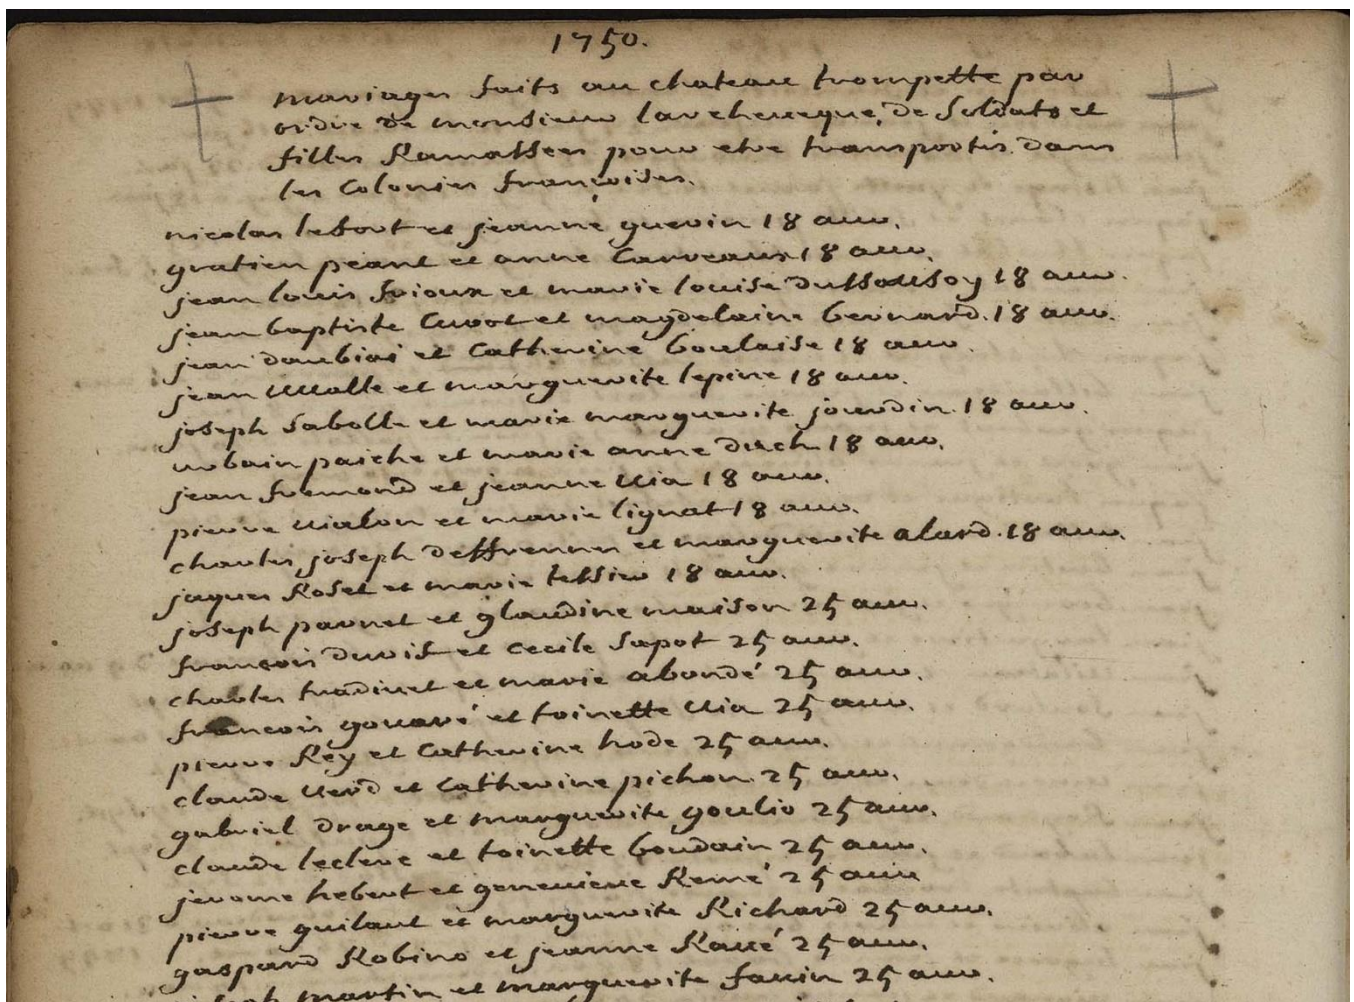 1750.
mariages faits au chateau trompette par
ordre de monsieur larcheveque, de Soldats et
filles Ramassees pour etre transportés dans
les Colonies francoises.
nicolas lefort et jeanne guerin 18 avr.
gratien peant et anne Carveaux 18 avr.
jean louis frioux et marie louise dussoussoy 18 avr.
jean baptiste Curot et magdelaine bernard. 18 avr.
jean daubiai et Catherine boulaise 18 avr.
jean et marguerite lepine 18 avr.
joseph Sabolle et marie marguerite jourdin. 18 avr.
urbain paiche et marie anne duch 18 avr.
jean fremond et jeanne via 18 avr.
pierre vialon et marie lignat 18 avr.
charles joseph deffrennes et marguerite alard. 18 avr.
jaques Roset et marie tessier 18 avr.
joseph parnet et glaudine maison 25 avr.
francois durif et cecile Sapot 25 avr.
charles tradivet et marie abondé 25 avr.
francois gouaré et toinette via 25 avr.
pierre Rey et Catherine hode 25 avr.
claude verd et Catherine pichon. 25 avr.
gabriel drage et marguerite goulio 25 avr.
claude leclerc et toinette boudain 25 avr.
jerome hebert et genevieve Remé 25 avr
pierre guilaut et marguerite Richard 25 avr.
gaspard Robino et jeanne Ravé 25 avr.
martin et marguerite favin 25 avr.